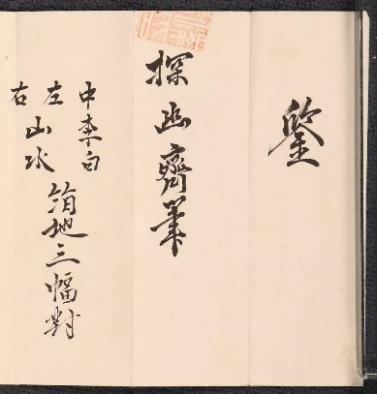 鑒
探幽齋筆
中李白
左山水
右
絹地三幅對